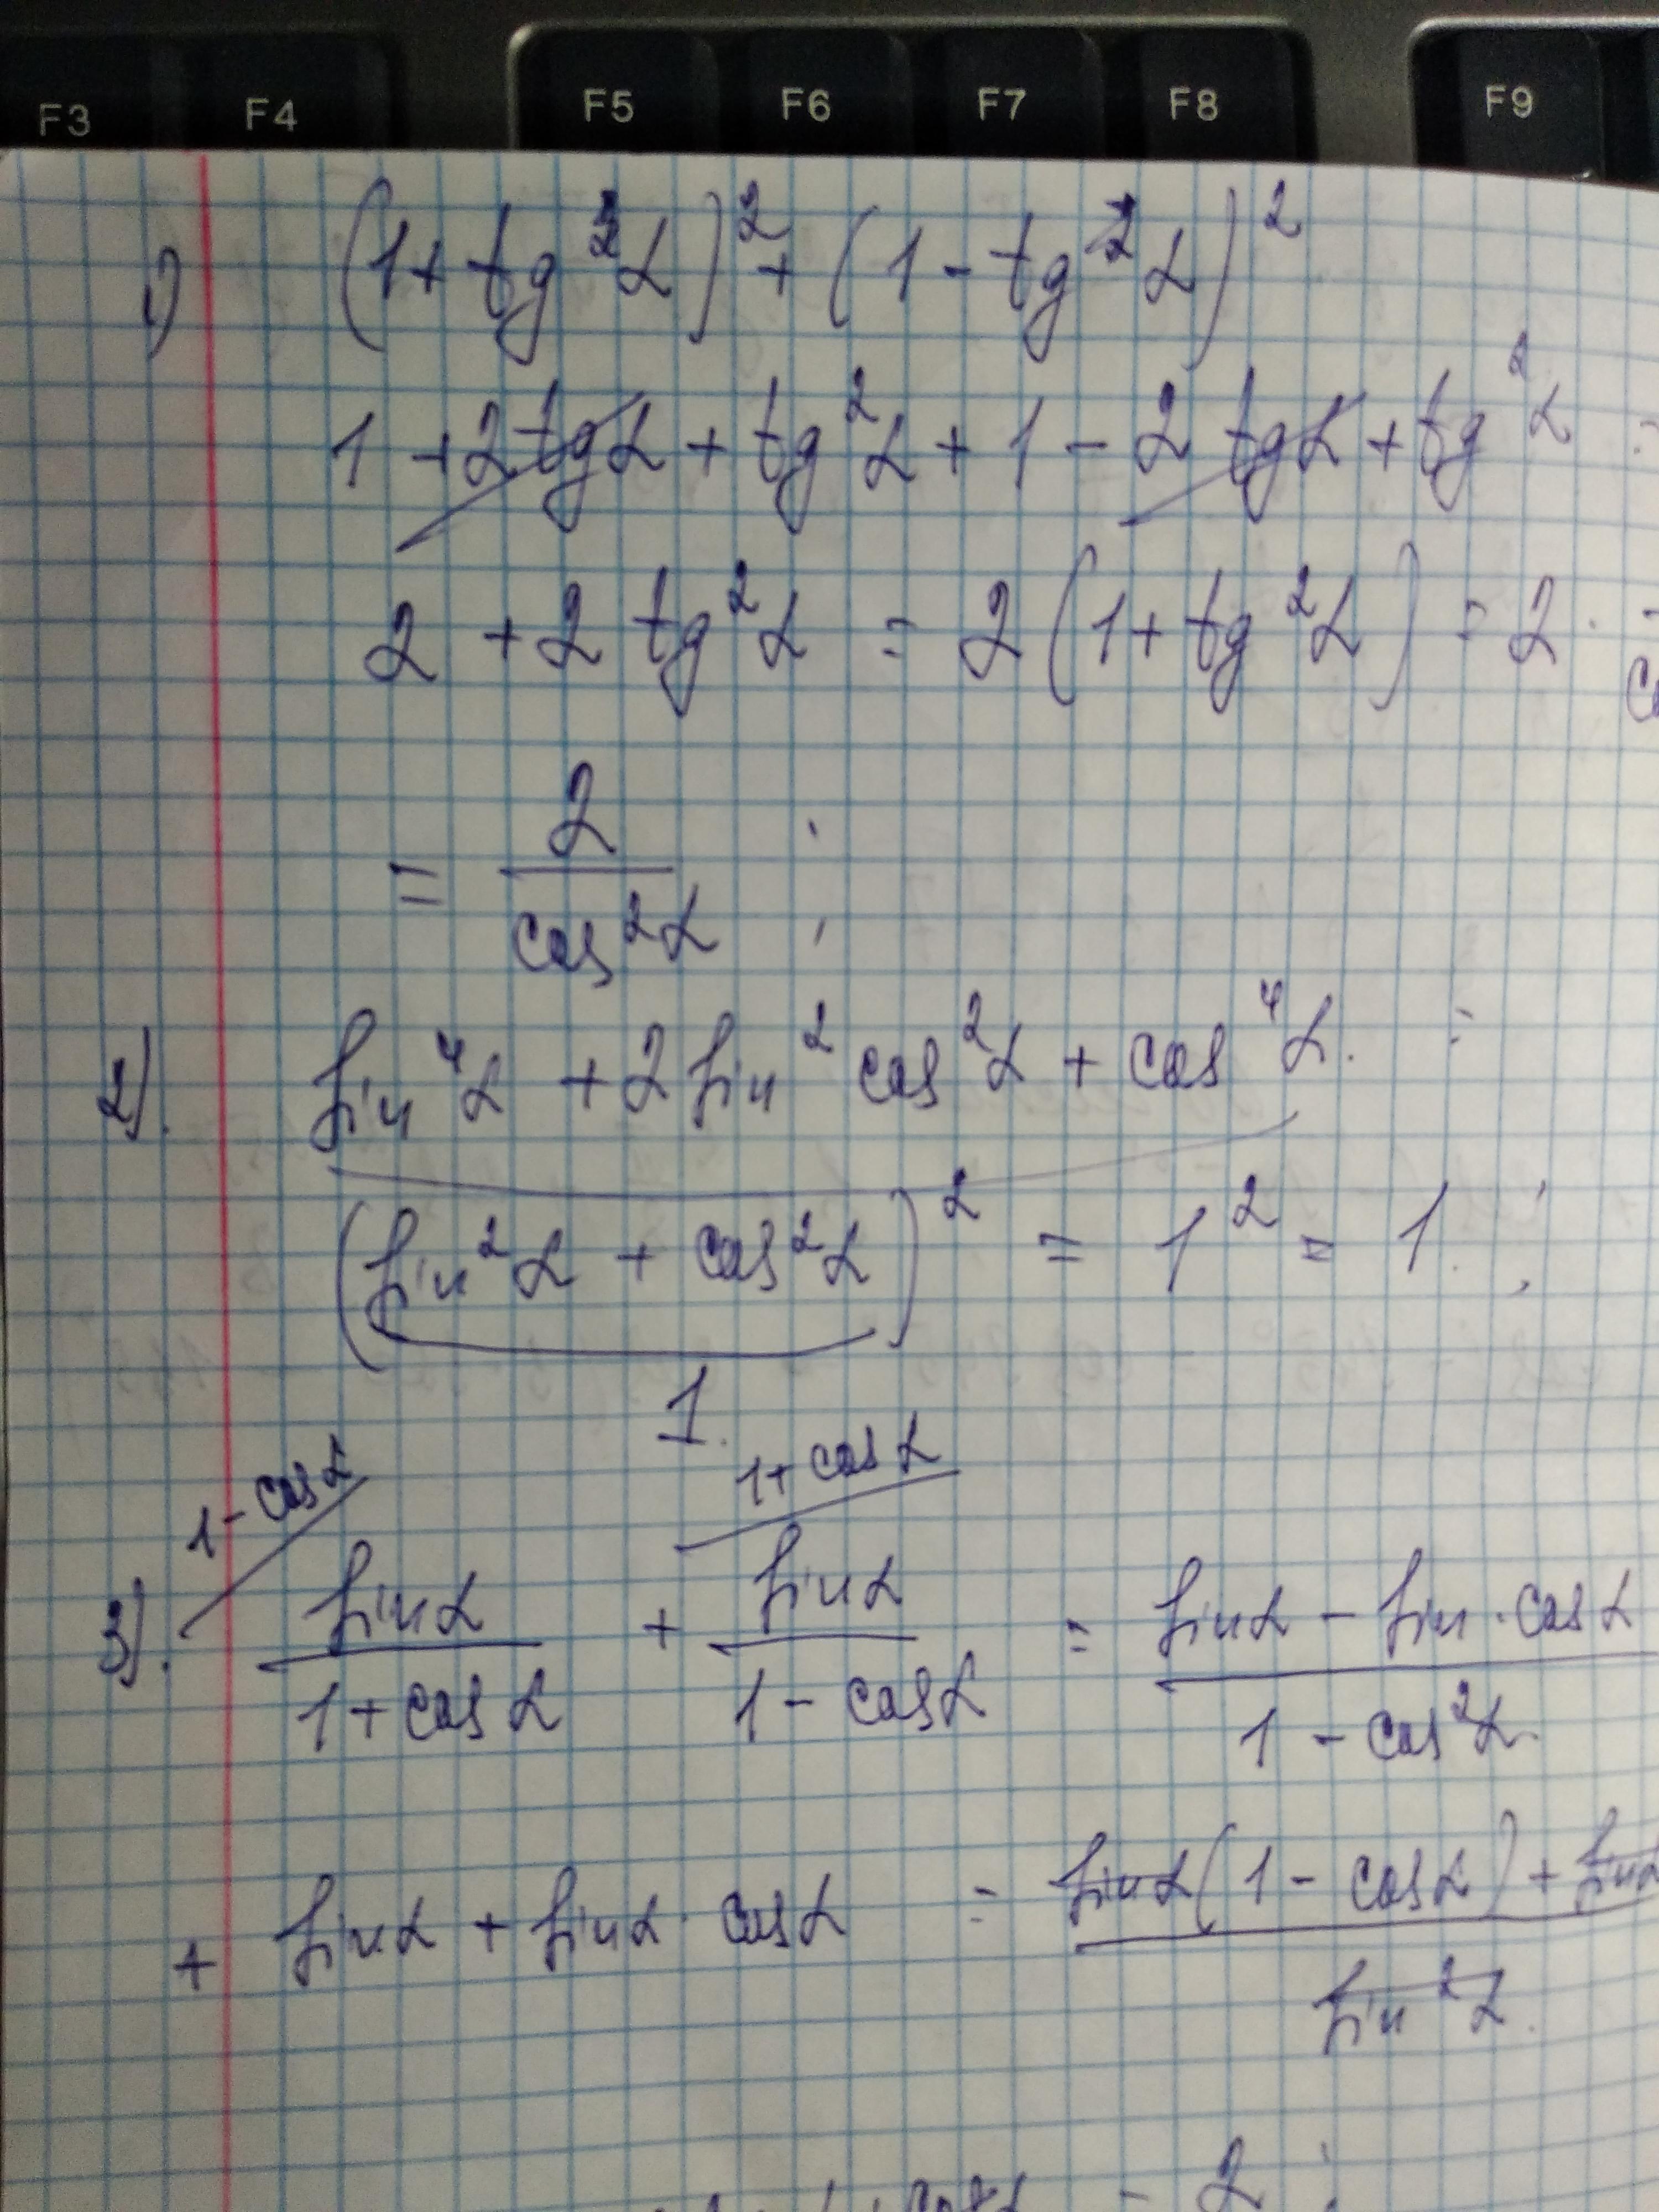 F3 F4 F5 F6 F7 F8 F9
1) (1 + tg²α)² + (1 - tg²α)²
1 + 2tgα + tg²α + 1 - 2 tgα + tg²α =
2 + 2 tg²α = 2(1 + tg²α) = 2 ·
= 2/cos²α ;
2). sin⁴α + 2 sin² cos²α + cos⁴α. =
(sin²α + cos²α)² = 1² = 1. ;
1.
1 - cosα 1 + cosα
3). sinα/(1 + cosα) + sinα/(1 - cosα) = (sinα - sin · cosα)/(1 - cos²α.
+ sinα + sinα · cosα = (sinα(1 - cosα) + sinα)/(sin²α.
cosα = 2 ;